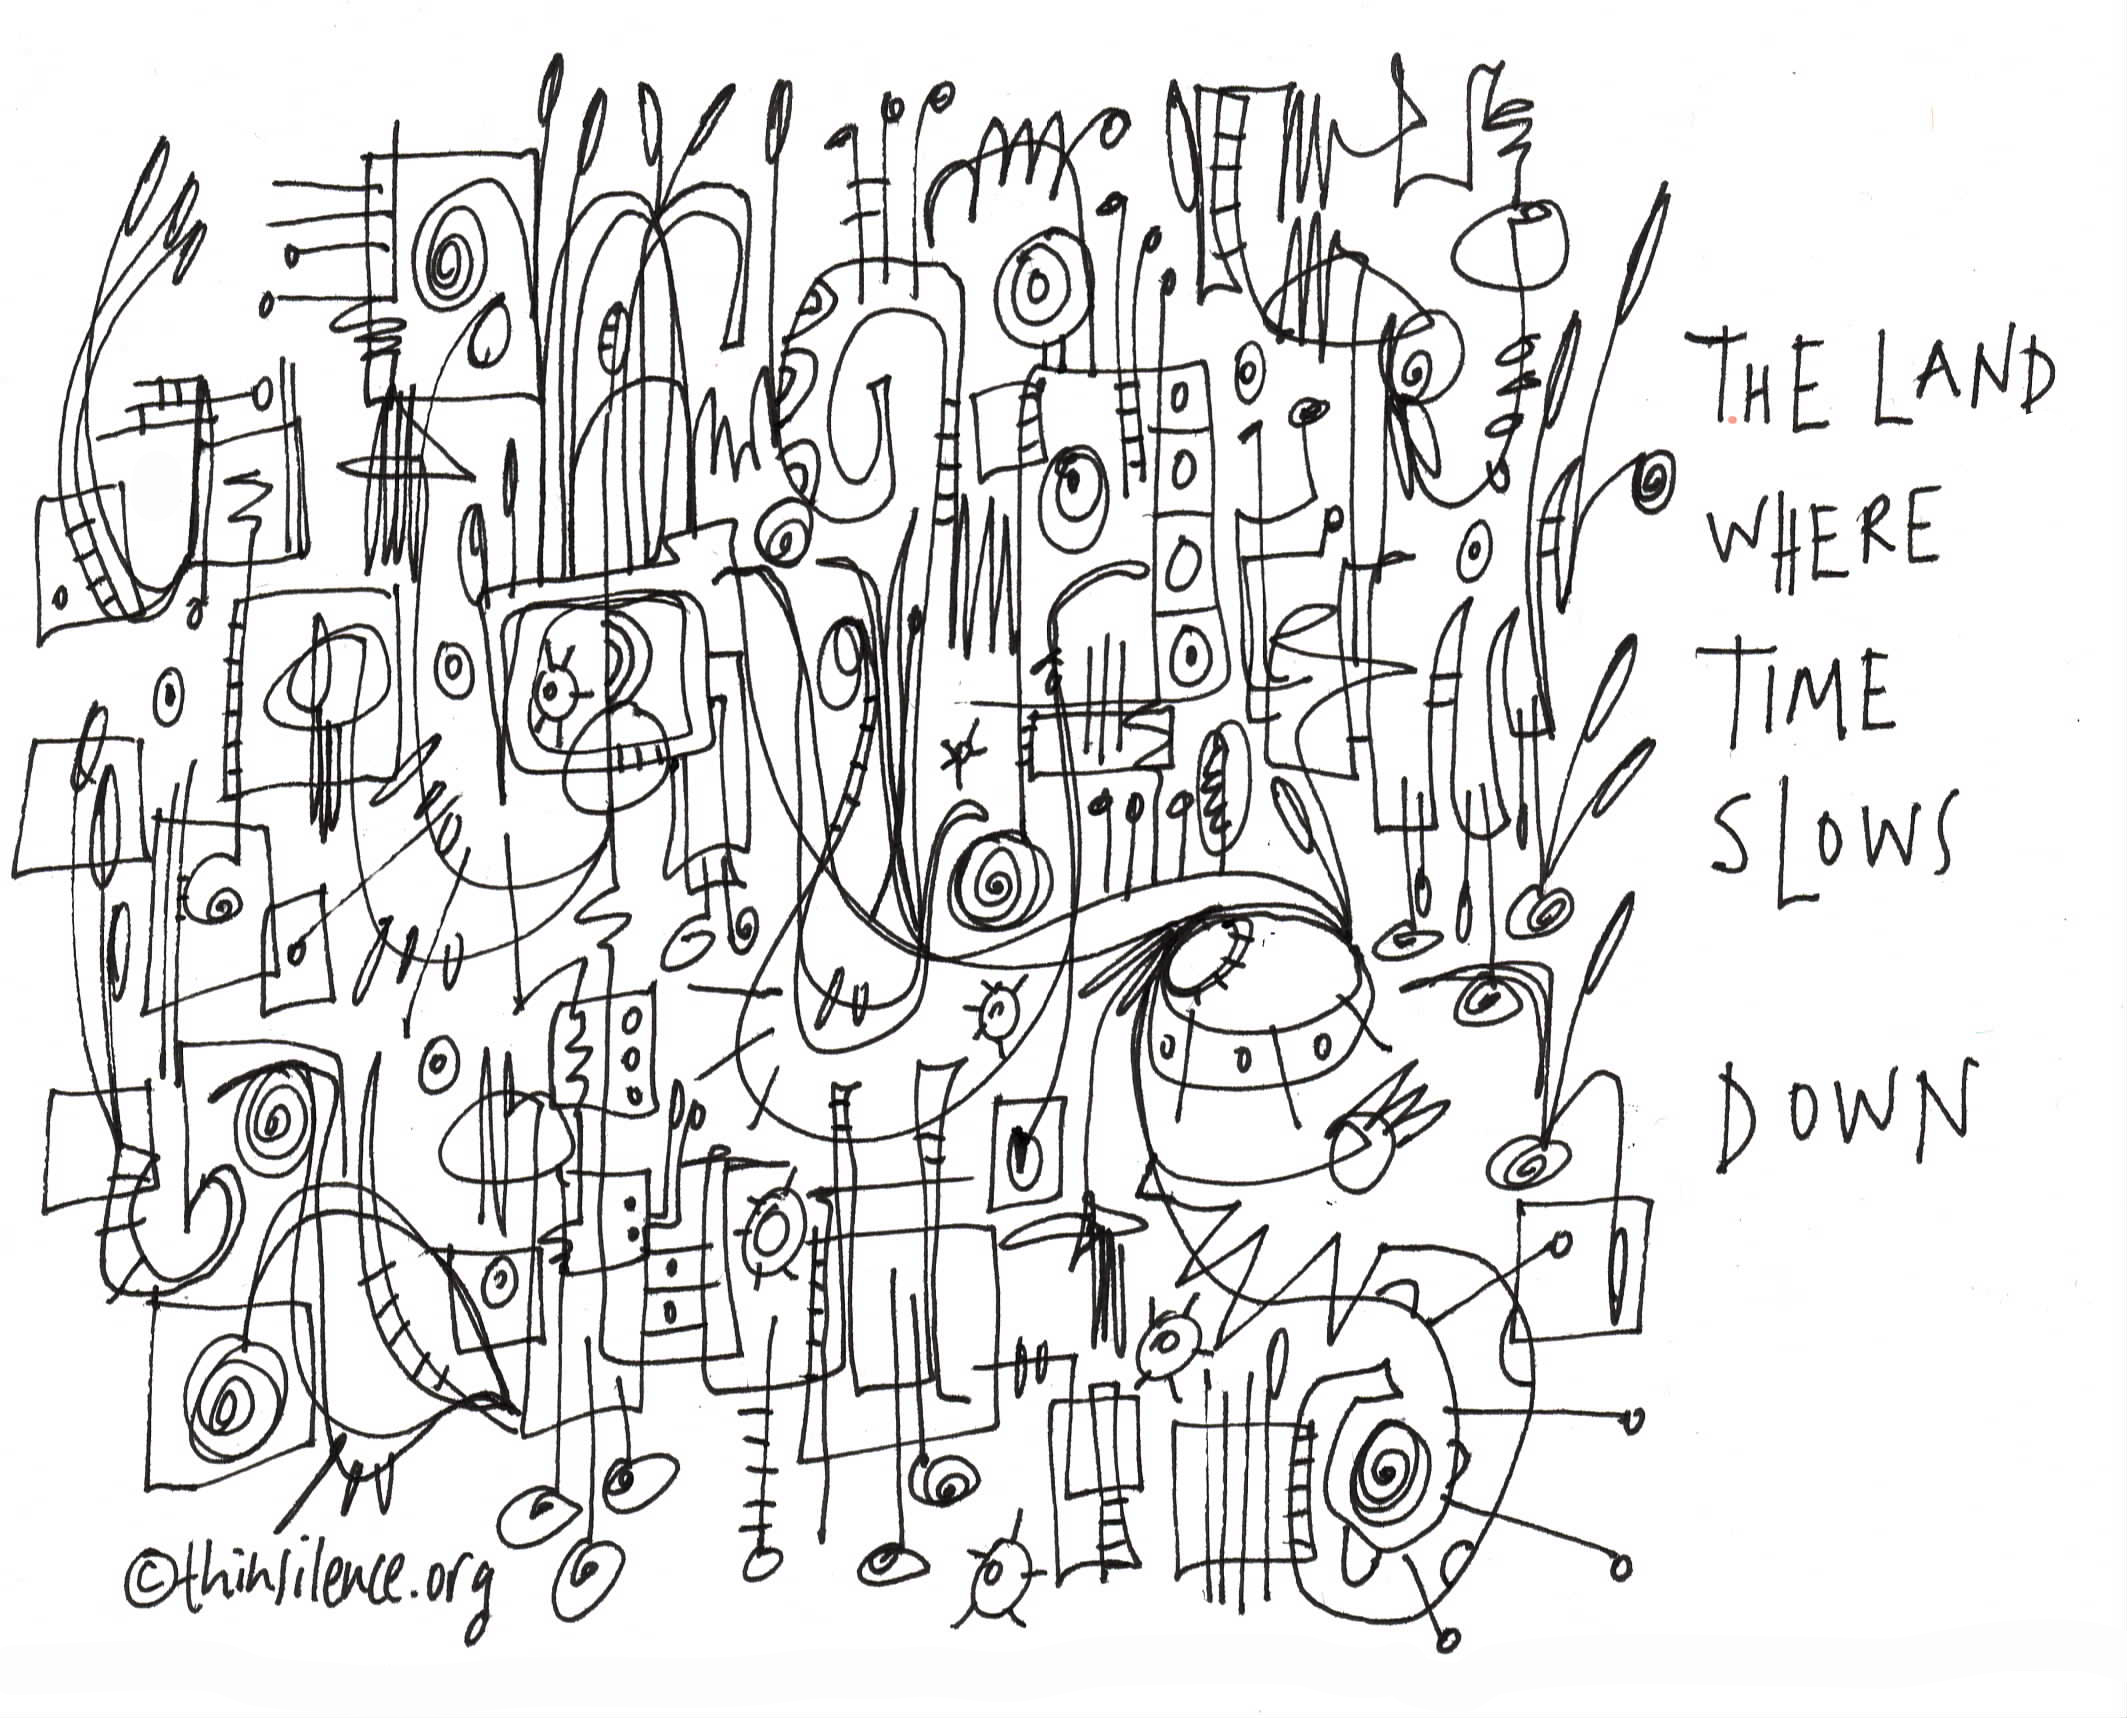 THE LAND
WHERE
TIME
SLOWS
DOWN
©thinsilence.org